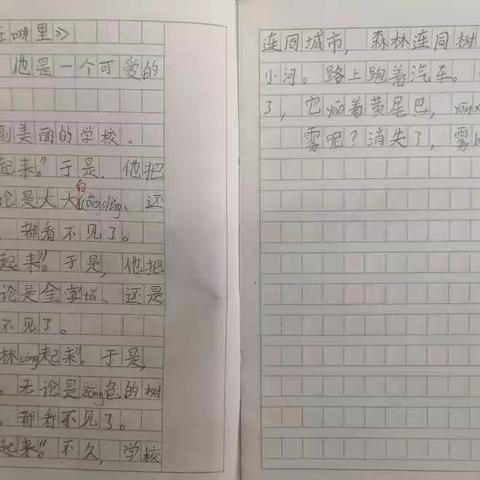 在哪里》
他是一个可爱的
到美丽的学校.
起来"。于是,他把
论是大大的cāochǎng、还
都看不见了。
起来"。于是,他把
论是金字tǎ、还是
不见了。
林cáng起来"。于是,
无论是zōng色的树
都看不见了。
起来"。不久,学校
连同城市,森林连同树
小河。路上跑着汽车。
了,它 着黄尾巴,
雾呢?消失了,雾